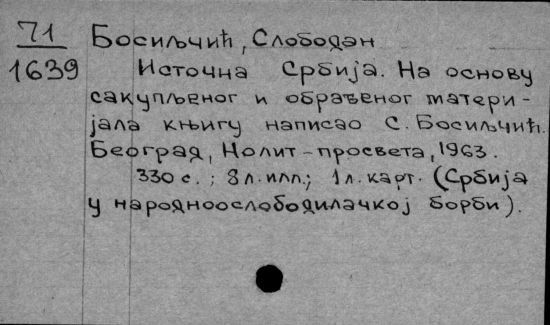 71
1639
Босиљчић, Слободан
Источна Србија. На основу
сакупљеног и обрађеног матери-
јала књигу написао С. Босиљчић.
Београд, Нолит-просвета, 1963.
330 с.; 8 л. илл.; 1 л. карт. (Србија
у народноослободилачкој борби).